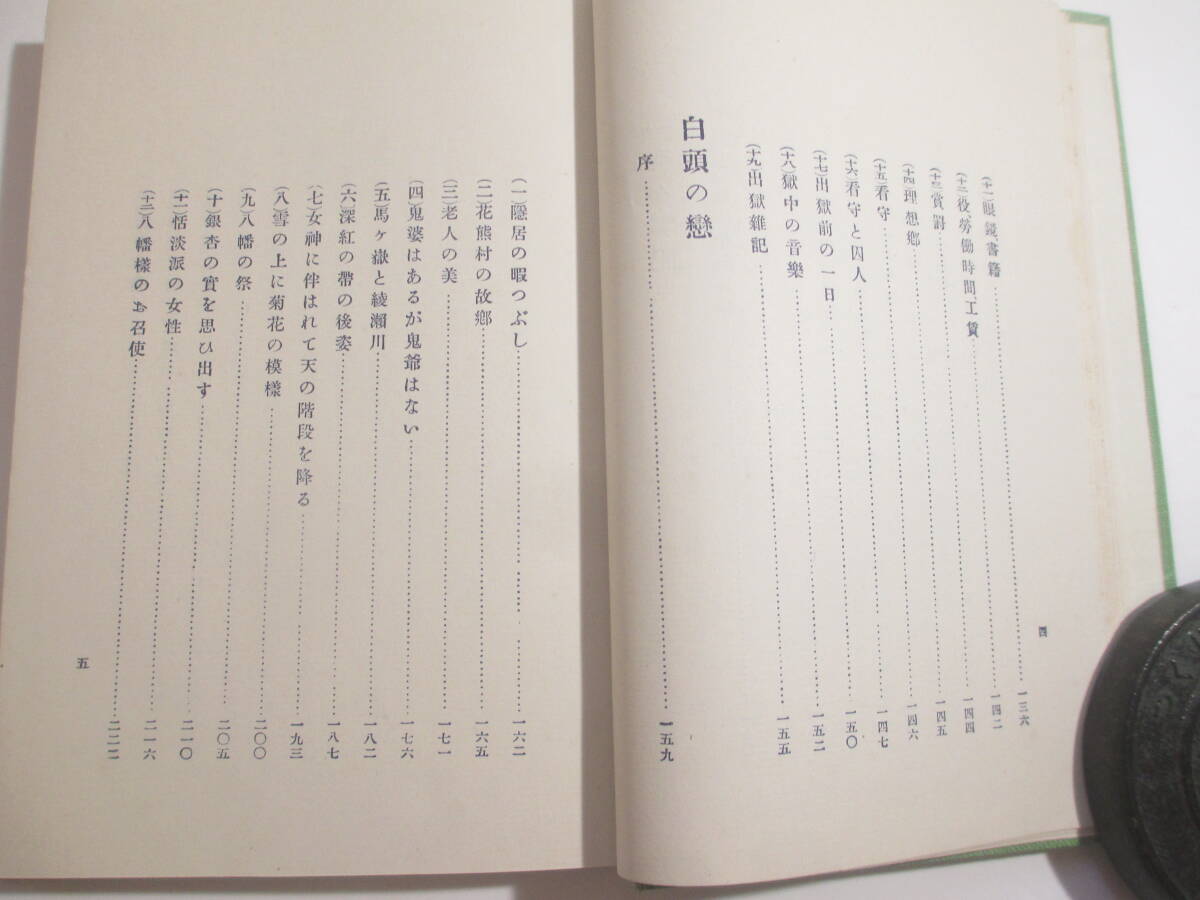 (十一)眼鏡書籍……一三六
(十二)役、勞働時間工賃……一四二
(十三)賞罰……一四四
(十四)理想鄕……一四五
(十五)看守……一四六
(十六)看守と囚人……一四七
(十七)出獄前の一日……一五〇
(十八)獄中の音樂……一五二
(十九)出獄雜記……一五五
白頭の戀
序……一五九
四
(一)隱居の暇つぶし……一六二
(二)花熊村の故鄕……一六五
(三)老人の美……一七一
(四)鬼婆はあるが鬼爺はない……一七六
(五)馬ヶ嶽と綾瀨川……一八二
(六)深紅の帶の後姿……一八七
(七)女神に伴はれて天の階段を降る……一九三
(八)雪の上に菊花の模樣……二〇〇
(九)八幡の祭……二〇五
(十)銀杏の實を思ひ出す……二一〇
(十一)恬淡派の女性……二一六
(十二)八幡樣のお召使……二二二
五